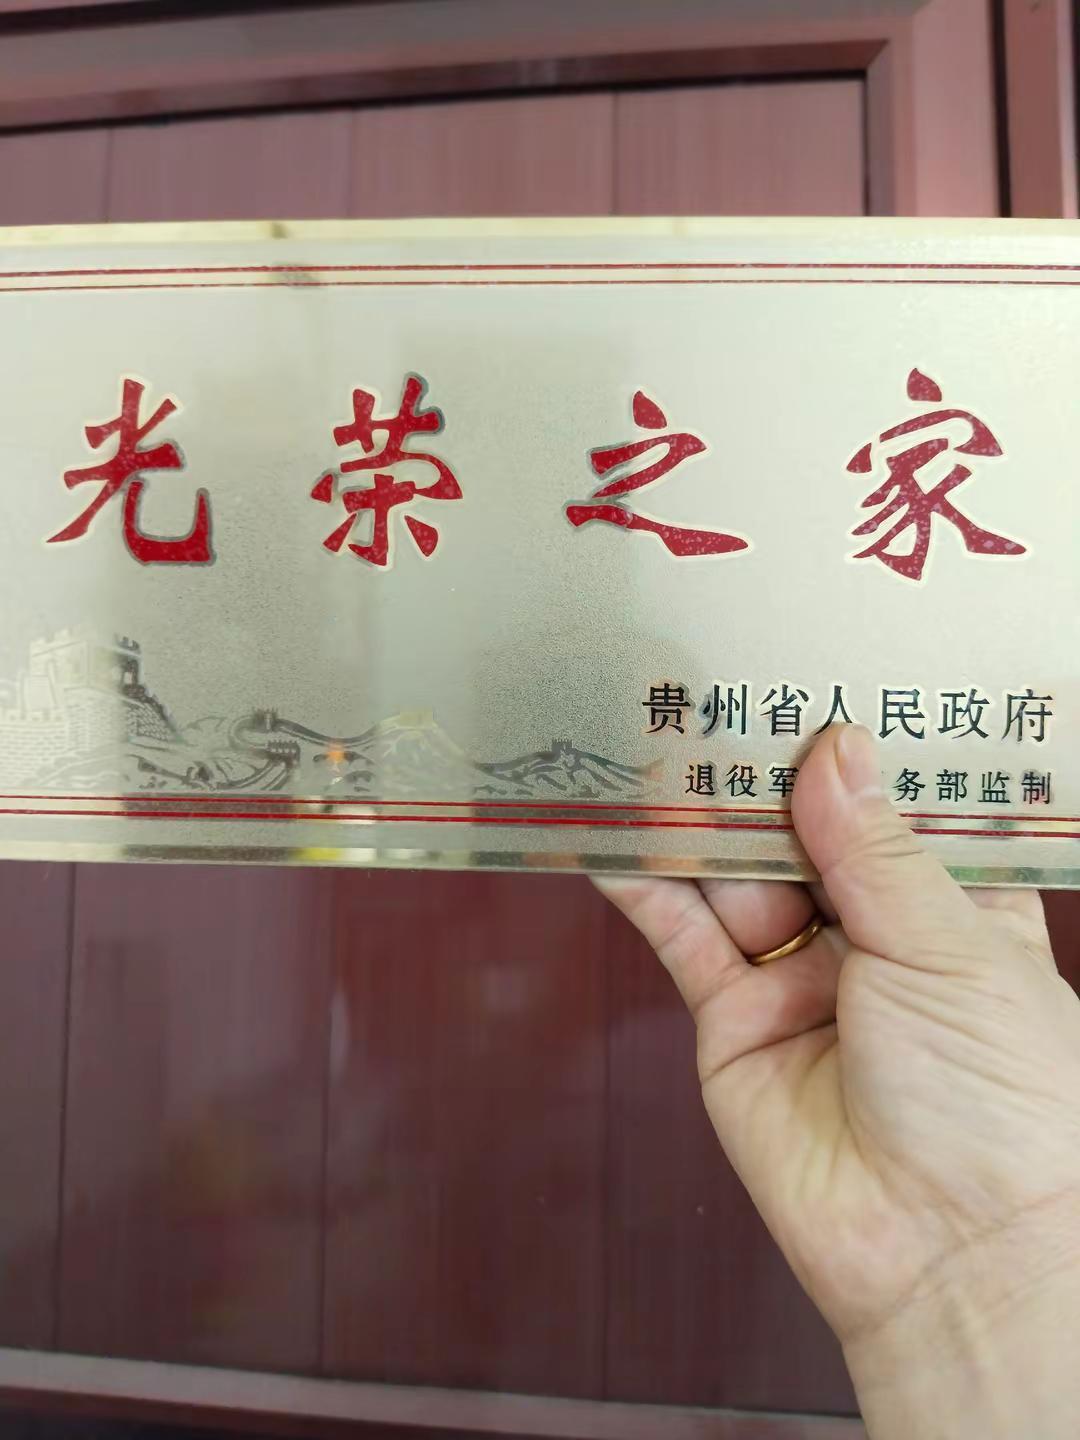 光荣之家
贵州省人民政府
退役军 务部监制